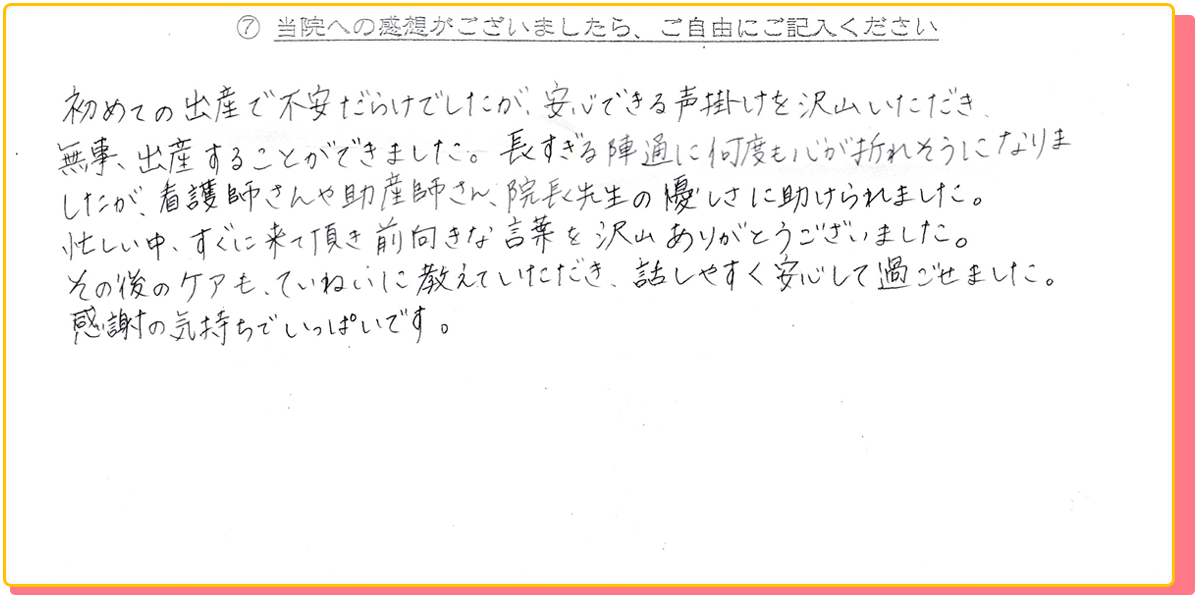 ⑦ 当院への感想がございましたら、ご自由にご記入ください
初めての出産で不安だらけでしたが、安心できる声掛けを沢山いただき、
無事、出産することができました。長すぎる陣通に何度も心が折れそうになりま
したが、看護師さんや助産師さん、院長先生の優しさに助けられました。
忙しい中、すぐに来て頂き前向きな言葉を沢山ありがとうございました。
その後のケアも、ていねいに教えていただき、話しやすく安心して過ごせました。
感謝の気持ちでいっぱいです。